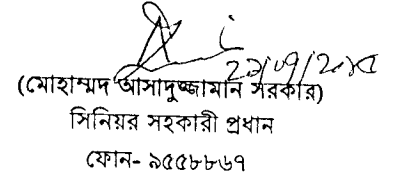 ২৯/০৭/২০১৫
(মোহাম্মদ আসাদুজ্জামান সরকার)
সিনিয়র সহকারী প্রধান
ফোন- ৯৫৫৮৮৬৭